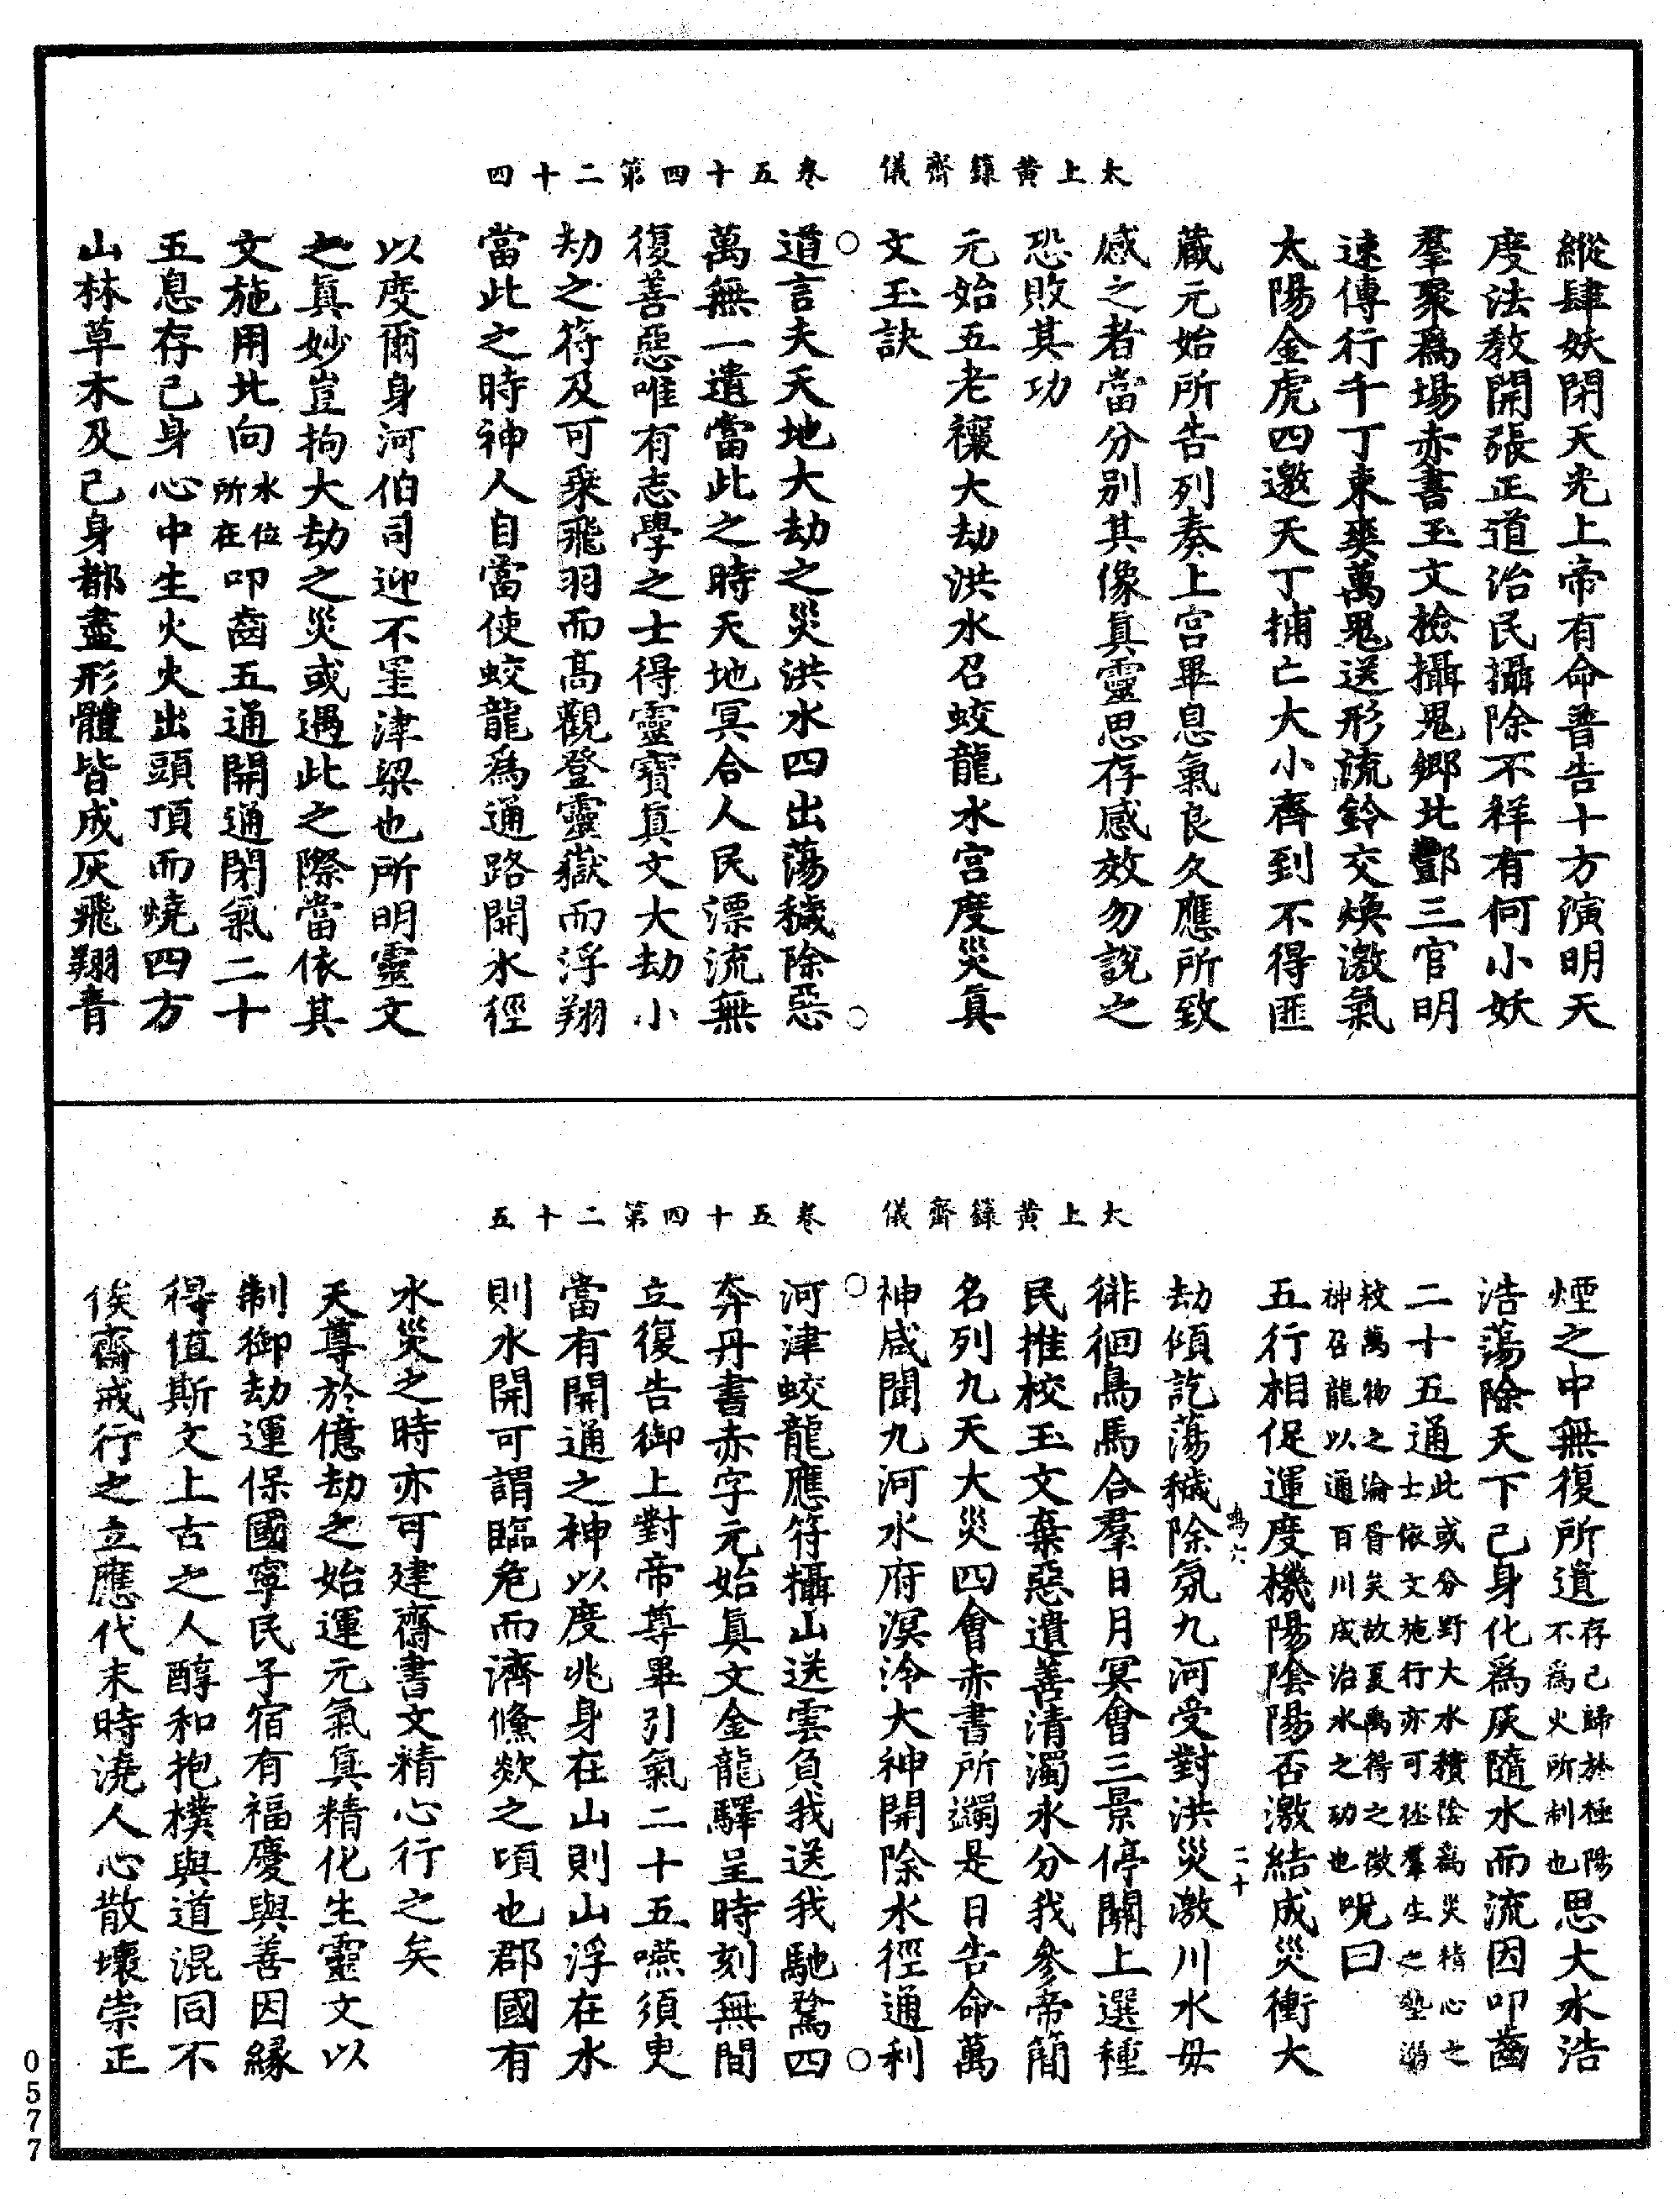 太上黃籙齋儀　卷五十四第二十四
縱肆妖閉天光上帝有命普告十方演明天
度法教開張正道治民攝除不祥有何小妖
羣聚爲場赤書玉文檢攝鬼鄉北酆三官明
速傳行千丁束爽萬鬼送形流鈴交煥激氣
太陽金虎四邀天丁捕亡大小齊到不得匪
藏元始所告列奏上宮畢息氣良久應所致
感之者當分別其像真靈思存感效勿說之
恐敗其功
元始五老禳大劫洪水召蛟龍水宮度災真
文玉訣
道言夫天地大劫之災洪水四出蕩穢除惡
萬無一遺當此之時天地冥合人民漂流無
復善惡唯有志學之士得靈寶真文大劫小
劫之符及可乘飛羽而高觀登靈嶽而浮翔
當此之時神人自當使蛟龍爲通路開水徑
以度爾身河伯司迎不罣津梁也所明靈文
之真妙豈拘大劫之災或遇此之際當依其
文施用北向水位所在叩齒五通開通閉氣二十
五息存己身心中生火火出頭頂而燒四方
山林草木及己身都盡形體皆成灰飛翔青
太上黃籙齋儀　卷五十四第二十五
煙之中無復所遺存己歸於極陽不爲火所制也思大水浩
浩蕩除天下己身化爲灰隨水而流因叩齒
二十五通此或分野大水積陰爲災精心之士依文施行亦可拯羣生之墊溺
救萬物之淪胥矣故夏禹得之徵神召龍以通百川成治水之功也呪曰
五行相促運度機陽陰陽否激結成災衝大
劫傾訖蕩穢除氛九河受對洪災激川水母
徘徊鳥馬合羣日月冥會三景停關上選種
民推校玉文棄惡遺善清濁永分我參帝簡
名列九天大災四會赤書所蠲是日告命萬
神咸聞九河水府溟泠大神開除水徑通利
河津蛟龍應符攝山送雲負我送我馳騖四
奔丹書赤字元始真文金龍驛呈時刻無間
立復告御上對帝尊畢引氣二十五嚥須臾
當有開通之神以度兆身在山則山浮在水
則水開可謂臨危而濟儵欻之頃也郡國有
水災之時亦可建齋書文精心行之矣
天尊於億劫之始運元氣真精化生靈文以
制御劫運保國寧民子宿有福慶與善因緣
得值斯文上古之人醇和抱樸與道混同不
俟齋戒行之立應代末時澆人心散壞崇正
鳴六
二十
0577